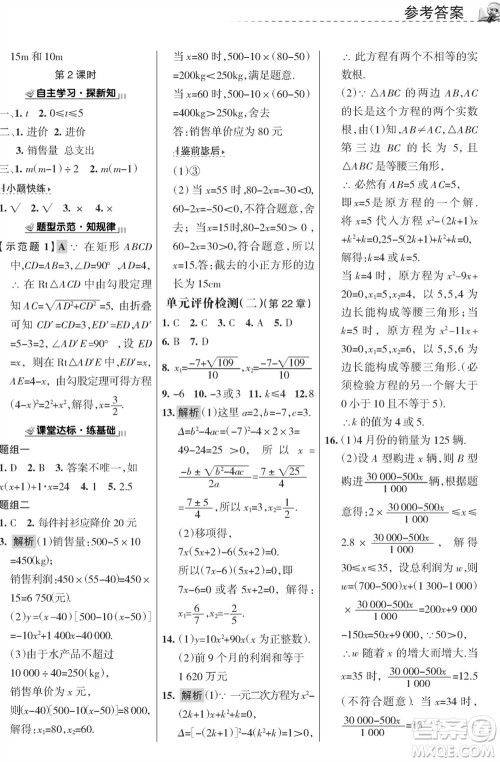 参考答案
15m和10m
第2课时
自主学习·探新知
一、1. t 2. 0≤t≤5
二、1. 进价 2. 进价
3. 销售量 总支出
三、m(m-1)÷2 m(m-1)
小题快练
1. √ 2. √ 3. × 4. ×
题型示范·知规律
【示范题1】A ∵在矩形ABCD
中,CD=AB=3,∠ADC=90°,
∴在Rt△ADC中,由勾股定理
可知AC=√(AD²+CD²)=5,由折叠
可知CD′=CD=3,∴AD′=AC-CD′
=5-3=2,设D′E=x,则AE=4-x,
∵∠AD′E=90°
∴在Rt△AD′E中,由勾股定理可
得AD′²+D′E²=AE²,即2²+x²=
(4-x)²,解得x=3/2
课堂达标·练基础
题组一
1. D 2. B 3. 答案不唯一
x(x+5)=300 4. 1 5. 2.5
题组二
1. C 2. 每件衬衫应降价20元
3. 解析 (1)销售量:500-5×10
=450(kg);
销售利润:450×(55-40)=450×
15=6 750(元)
(2)y=(x-40)[500-10(x-50)]
=-10x²+1 400x-40 000
(3)由于水产品不超过
10 000÷40=250kg,定价为x元,
则(x-40)[500-10(x-50)]=8 000
解得:x₁=80,x₂=60.
当x=80时,500-10×(80-50)=
200kg<250kg,满足题意
当x=60时,500-10×(60-50)=
400kg>250kg(舍去)
答:销售单价应为80元
鉴前毖后
(1)①③
(2)正解:设截去的小正方形
的边长为xcm,由题意得,
(80-2x)(60-2x)=1 500,
整理得:x²-70x+825=0,
解得x₁=55,x₂=15,
当x=55时,80-2x=-30<0
60-2x=-50<0
∴不符合题意,舍去;
当x=15时,80-2x=50>0,
60-2x=30>0
∴x=15符合题意,
所以x=15
答:截去的小正方形的边
长为15cm
单元评价检测(二)(第22章)
1. C 2. C 3. C 4. A 5. D
6. B 7. D
8. x₁=(-7+√109)/10,x₂=(-7-√109)/10
9. -6 10. -3或3 11. k<1 12. 8
13. 解析 (1)这里a=2,b=-7,c=3,
Δ=b²-4ac=(-7)²-4×2×3=
49-24=25>0,
∴x=(-b±√(b²-4ac))/2a=(7±√25)/4
所以x₁=3,x₂=1/2
(2)移项得,
7x(5x+2)-6(5x+2)=0,
(5x+2)(7x-6)=0,
所以5x+2=0或
7x-6=0,解得x₁=-2/5,x₂=
6/7
14. (1)y=10x²+90x(x为正整数).
(2)前9个月的利润和等于
1 620万元
15. 解析 (1)∵一元二次方程为x²-
(2k+1)x+k²+k=0,
Δ=[-(2k+1)]²-4(k²+k)=1>0,
∴此方程有两个不相等的实
数根.
(2)∵△ABC的两边AB、AC
的长是这个方程的两个实数
根,由(1)知,AB≠AC,△ABC
第三边BC的长为5,且
△ABC是等腰三角形,
∴必然有AB=5或AC=5,
即x=5是原方程的一个解.
将x=5代入方程x²-(2k+1)x
+k²+k=0,25-5(2k+1)+k²+k
=0,解得k=4或k=5.
当k=4时,原方程为x²-9x+
20=0,x₁=5,x₂=4,以5,5,4为
边长能构成等腰三角形;
当k=5时,原方程为x²-11x+
30=0,x₁=5,x₂=6,以5,5,6为
边长能构成等腰三角形.(必
须检验方程的另一个解大于
0小于10且不等于5)
∴k的值为4或5.
16. (1)4月份的销量为125辆.
(2)设A型车x辆,根据题意得
(30 000-500x)/1 000,
2×(30 000-500x)/1 000≤x≤
2.8×(30 000-500x)/1 000,解得
30≤x≤35,设总利润为w元,
则w=(700-500)x+(1 300-
1 000)×(30 000-500x)/1 000=50x+9 000
∵50>0,
∴w随着x的增大而增大.当
x=34时,(30 000-500x)/1 000=13,当
x=35时,(30 000-500x)/1 000=12.5
(不符合题意).当x=34时,
(30 000-500x)/1 000=13.